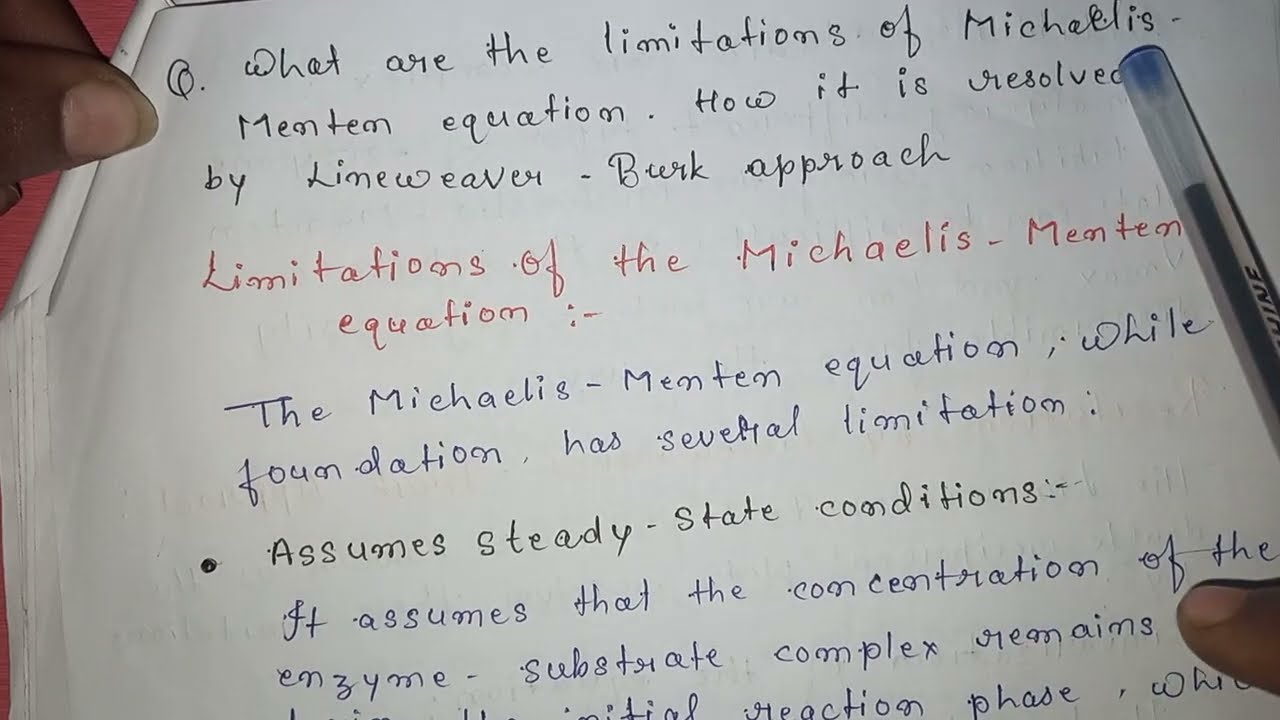 Q. What are the limitations of Michaelis-
Menten equation. How it is resolved
by Lineweaver - Burk approach
Limitations of the Michaelis - Menten
equation :-
The Michaelis - Menten equation, while
foundation, has several limitation :
• Assumes steady - state conditions:-
It assumes that the concentration of the
enzyme - substrate complex remains
the initial reaction phase,